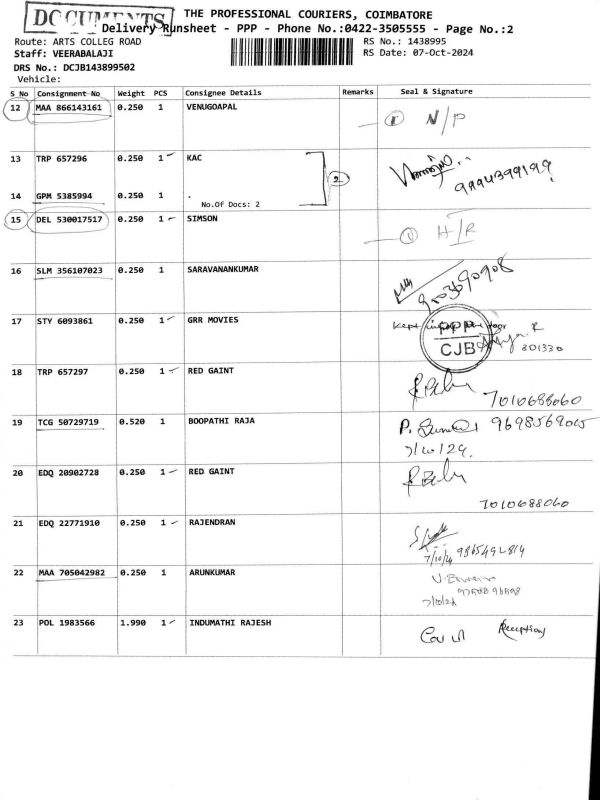 DOCUMENTS
THE PROFESSIONAL COURIERS, COIMBATORE
Delivery Runsheet - PPP - Phone No.:0422-3505555 - Page No.:2
Route: ARTS COLLEG ROAD
RS No.: 1438995
Staff: VEERABALAJI
RS Date: 07-Oct-2024
DRS No.: DCJB143899502
Vehicle:
S_No Consignment No Weight PCS Consignee Details Remarks Seal & Signature
12 MAA 866143161 0.250 1 VENUGOAPAL N/P
13 TRP 657296 0.250 1 KAC 2
9994399199
14 GPM 5385994 0.250 1 .
No.Of Docs: 2
15 DEL 530017517 0.250 1 SIMSON
16 SLM 356107023 0.250 1 SARAVANANKUMAR
17 STY 6093861 0.250 1 GRR MOVIES
Kept
PPP
CJB
801330
18 TRP 657297 0.250 1 RED GAINT
7010688060
19 TCG 50729719 0.520 1 BOOPATHI RAJA
7/10/24.
20 EDQ 20902728 0.250 1 RED GAINT
7010688060
21 EDQ 22771910 0.250 1 RAJENDRAN
7/10/24
22 MAA 705042982 0.250 1 ARUNKUMAR
7/10/24
23 POL 1983566 1.990 1 INDUMATHI RAJESH Reception